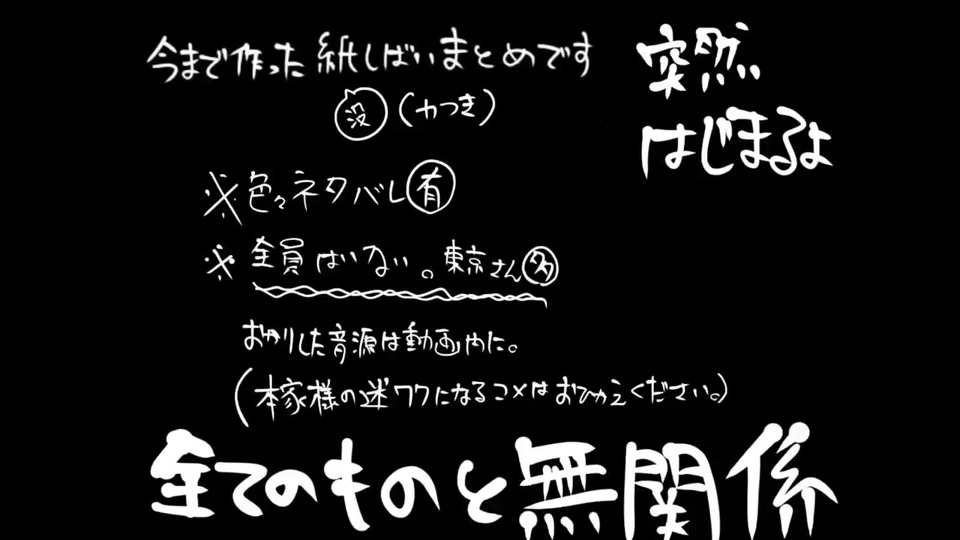 今まで作った紙しばいまとめです
没(かつき)
突然
はじまるよ
※色々ネタバレ有
※全員はいない。東京さん多
おかりした音源は動画内に。
(本家様の迷ワクになるコメはおひかえください。)
全てのものと無関係